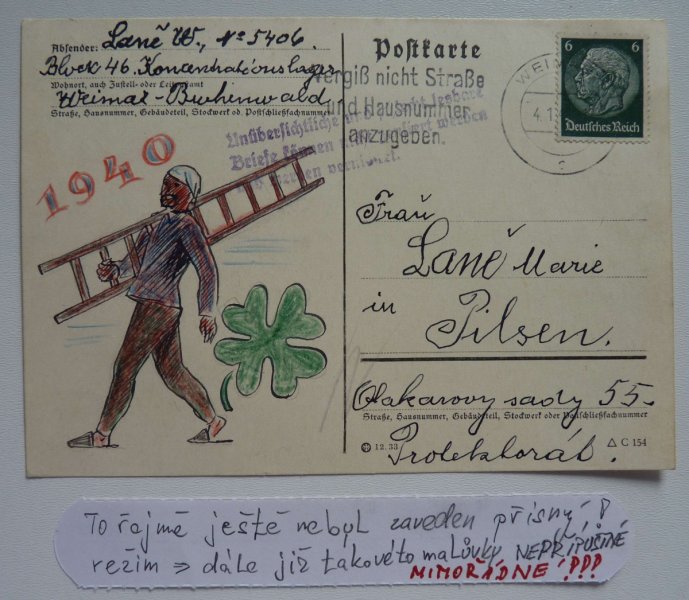 Absender: Laně W., № 5406.
Block 46. Konzentrationslager
Wohnort, auch Zustell- oder Leitpostamt
Weimar-Buchenwald
Straße, Hausnummer, Gebäudeteil, Stockwerk od. Postschließfachnummer
Postkarte
Vergiß nicht Straße
und Hausnummer
anzugeben.
6 6
Deutsches Reich
Unübersichtliche und lesbare
Briefe können nicht werden
1940
Frau
Laně Marie
in
Pilsen.
Otakarovy sady 55.
Straße, Hausnummer, Gebäudeteil, Stockwerk oder Postschließfachnummer
12.38 C 154
Protektorát.
To řejmě ještě nebyl zaveden přísný!
režim ⇒ dále již takovéto malůvky NEPŘÍPUSTNÉ
MIMOŘÁDNÉ!!!